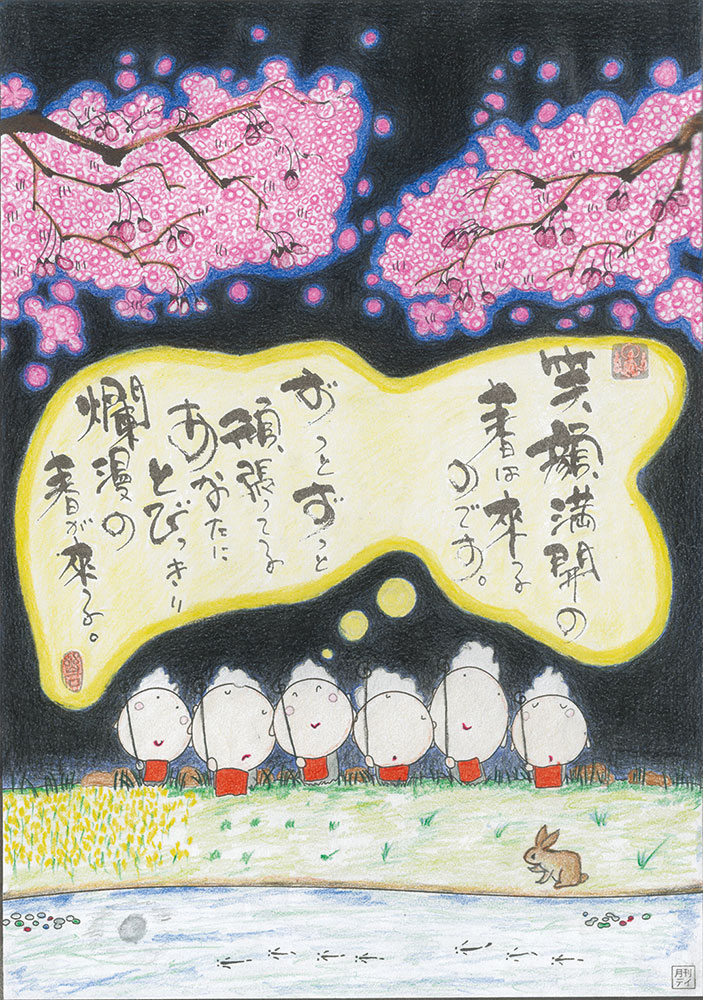 笑顔満開の
春は来る
のです。
ずっとずっと
頑張ってる
あなたに
とびっきり
爛漫の
春が来る。
月刊
テイ